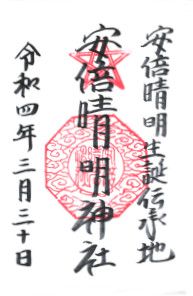 安倍晴明生誕伝承地
安倍晴明神社
令和四年三月三十日